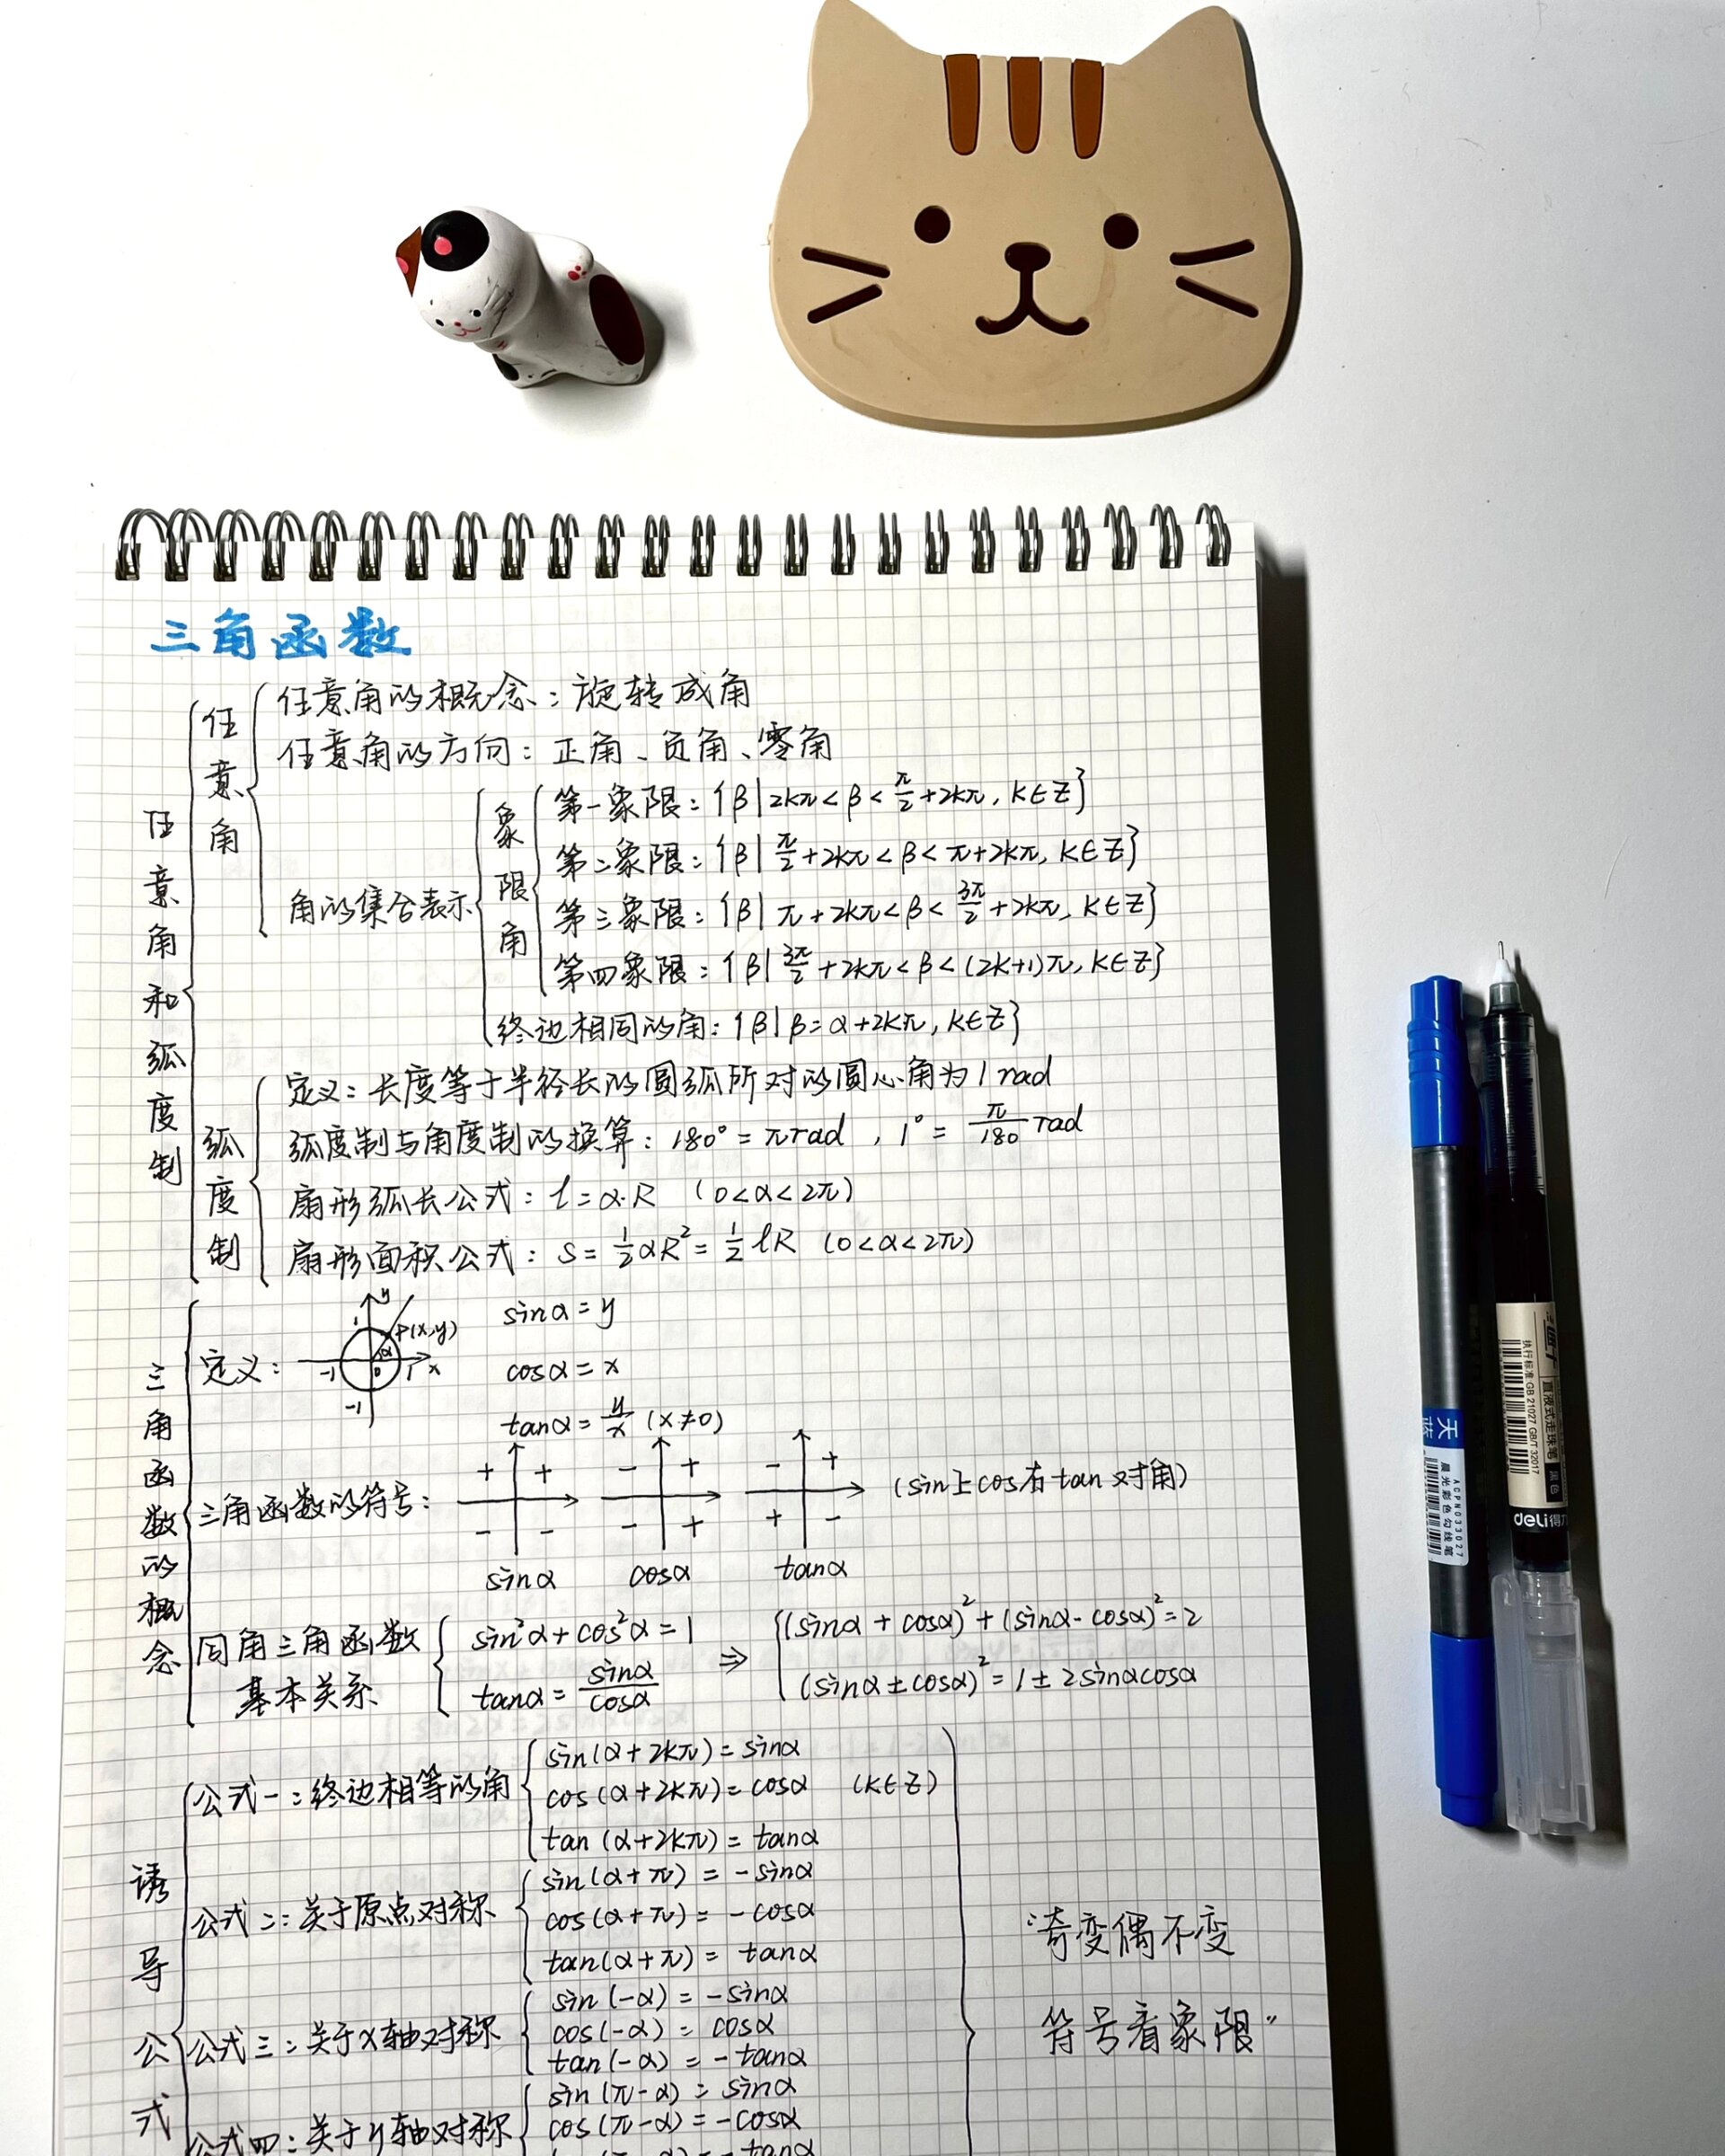 三角函数
任意角和弧度制
任意角
任意角的概念：旋转成角
任意角的方向：正角、负角、零角
角的集合表示
象限角
第一象限：{β|2kπ<β<π/2+2kπ, k∈Z}
第二象限：{β|π/2+2kπ<β<π+2kπ, k∈Z}
第三象限：{β|π+2kπ<β<3π/2+2kπ, k∈Z}
第四象限：{β|3π/2+2kπ<β<(2k+1)π, k∈Z}
终边相同的角：{β|β=α+2kπ, k∈Z}
弧度制
定义：长度等于半径长的圆弧所对的圆心角为1rad
弧度制与角度制的换算：180°=πrad，1°=π/180 rad
扇形弧长公式：l=α·R （0<α<2π）
扇形面积公式：S=1/2αR²=1/2lR （0<α<2π）
三角函数的概念
定义：
y
1
P(x,y)
α
-1 0 1 x
-1
sinα=y
cosα=x
tanα=y/x (x≠0)
三角函数的符号：
+ + - + - +
- - - + + -
sinα cosα tanα
(sin上cos右tan对角)
同角三角函数
基本关系
sin²α+cos²α=1
tanα=sinα/cosα
⇒
(sinα+cosα)²+(sinα-cosα)²=2
(sinα±cosα)²=1±2sinαcosα
诱导公式
公式一：终边相等的角
sin(α+2kπ)=sinα
cos(α+2kπ)=cosα (k∈Z)
tan(α+2kπ)=tanα
公式二：关于原点对称
sin(α+π)=-sinα
cos(α+π)=-cosα
tan(α+π)=tanα
公式三：关于x轴对称
sin(-α)=-sinα
cos(-α)=cosα
tan(-α)=-tanα
公式四：关于y轴对称
sin(π-α)=sinα
cos(π-α)=-cosα
-tanα
“奇变偶不变
符号看象限”
天蓝
ACPN033027
晨光彩色勾线笔
直液式走珠笔 黑色
执行标准:GB 21027 GB/T 32017
deli得力